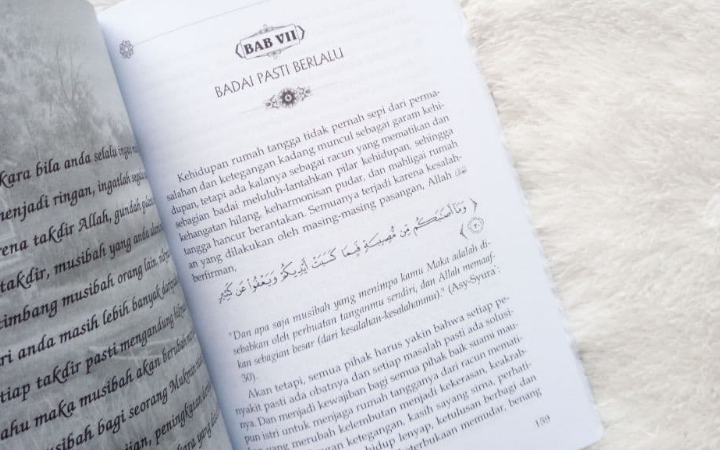 kara bila anda selalu ingat
menjadi ringan, ingatlah
rena takdir Allah, gundah
takdir, musibah yang anda
timbang musibah orang lain,
ri anda masih lebih banyak
tiap takdir pasti mengandung
ahu maka musibah akan berubah
musibah bagi seorang
dian, peningkatan
BAB VII
BADAI PASTI BERLALU
Kehidupan rumah tangga tidak pernah sepi dari perma-
salahan dan ketegangan kadang muncul sebagai garam kehi-
dupan, tetapi ada kalanya sebagai racun yang mematikan dan
sebagian badai meluluh-lantahkan pilar kehidupan, sehingga
kehangatan hilang, keharmonisan pudar, dan mahligai rumah
tangga hancur berantakan. Semuanya terjadi karena kesalah-
an yang dilakukan oleh masing-masing pasangan, Allah ﷻ
berfirman,
وَمَا أَصَابَكُم مِّن مُّصِيبَةٍ فَبِمَا كَسَبَتْ أَيْدِيكُمْ وَيَعْفُو عَن كَثِيرٍ
"Dan apa saja musibah yang menimpa kamu Maka adalah di-
sebabkan oleh perbuatan tanganmu sendiri, dan Allah memaaf-
kan sebagian besar (dari kesalahan-kesalahanmu)." (Asy-Syura':
30).
Akan tetapi, semua pihak harus yakin bahwa setiap pe-
nyakit pasti ada obatnya dan setiap masalah pasti ada solusi-
nya. Dan menjadi kewajiban bagi semua pihak baik suami mau-
pun istri untuk menjaga rumah tangganya dari racun memati-
kan yang merubah kelembutan menjadi kekerasan, keakrab-
ketegangan, kasih sayang sirna, perhati-
hidup lenyap, ketulusan berbagi dan
keterbukaan memudar, benang
159